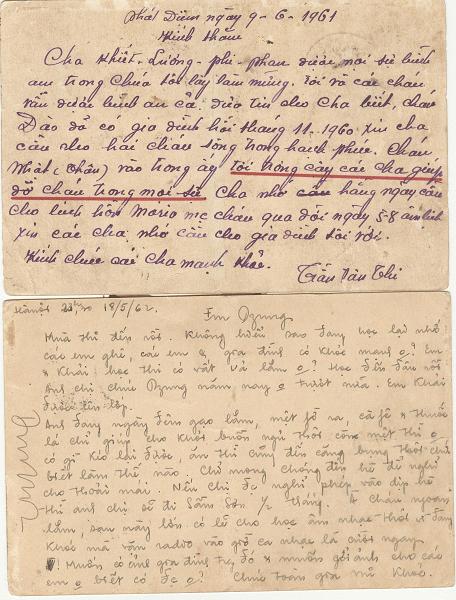 Phát Diệm ngày 9-6-1961
Kính thăm
Cha Khiết-Lương-phi-phan được mọi sự bình
an trong Chúa tôi lấy làm mừng. tôi và các cháu
vẫn được bình an cả. đưa tin cho Cha biết, cháu
Đào đã có gia đình hồi tháng 11.1960 xin cha
cầu cho hai cháu sống trong hạnh phúc. Cháu
Nhật (Châu) vào trong ấy tôi trông cậy các cha giúp
đỡ cháu trong mọi sự Cha nhớ hằng ngày cầu
cho linh hồn Maria mẹ cháu qua đời ngày 5-8 âm lịch
xin các cha nhớ cầu cho gia đình tôi với.
Kính chúc các Cha mạnh khỏe.
Trần Văn Thi
Hànội 18/5/62.
Em Dzung
Mùa thi đến rồi. Không hiểu sao Tany học lại nhớ
các em ghê, các em & gia đình có khỏe mạnh o? Em
& Khải học thi có vất vả lắm o? Học đến đâu rồi
Anh chỉ chúc Dzung năm nay o trượt nữa. Em Khải
được lên lớp.
Anh Tany ngày đêm gạo lắm, mệt phờ ra, cà fê & thuốc
lá chỉ giúp cho khỏi buồn ngủ thôi còn mệt thì o
có gì kéo lại được, ăn thì cũng đến căng bụng thôi chứ
biết làm thế nào. Chỉ mong chóng đến hè để nghỉ
cho thoải mái. Nếu chỉ fc nghỉ phép vào dịp hè
thì anh chị sẽ đi Sầm Sơn 1/2 tháng. A cháu ngoan
lắm, sau này lớn có lẽ cho học âm nhạc thôi vì đang
khóc mà vặn radio vào giờ ca nhạc là cười ngay
Muốn có ảnh gia đình & muốn gởi ảnh cho các
em o biết có fc o? Chúc toàn gia mạnh khỏe.